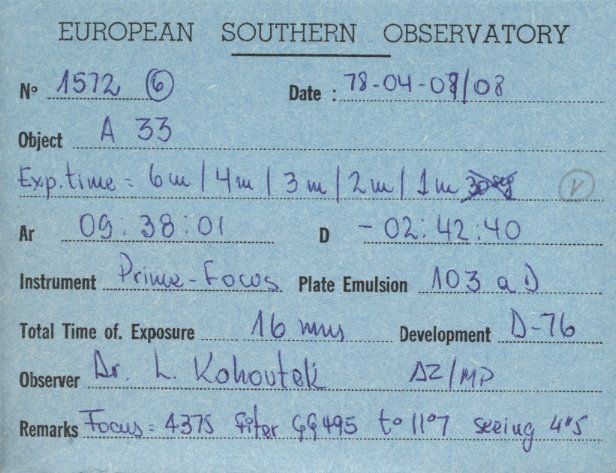 EUROPEAN SOUTHERN OBSERVATORY
Nº 1572 6 Date : 78-04-07/08
Object A 33
Exp.time = 6m / 4m / 3m / 2m / 1m 30seg V
Ar 09:38:01 D -02:42:40
Instrument Prime-Focus Plate Emulsion 103 a D
Total Time of. Exposure 16 mns Development D-76
Observer Dr. L. Kohoutek AZ/MP
Remarks Focus = 4375 Filter GG495 tº 11º7 seeing 4"5